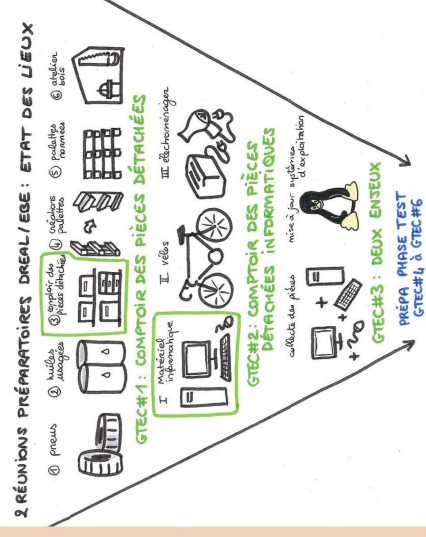 2 RÉUNIONS PRÉPARATOIRES DREAL/EBE : ETAT DES LIEUX
① pneus
② huiles
usagées
③ comptoir des
pièces détachées
④ créations
palettes
⑤ palettes
normées
⑥ atelier
bois
GTEC#1 : COMPTOIR DES PIÈCES DÉTACHÉES
I Matériel
informatique
II vélos
III électroménager
GTEC#2 : COMPTOIR DES PIÈCES
DÉTACHÉES INFORMATIQUES
collecte des pièces
mise à jour systèmes
d'exploitation
GTEC#3 : DEUX ENJEUX
PRÉPA PHASE TEST
GTEC#4 à GTEC#6